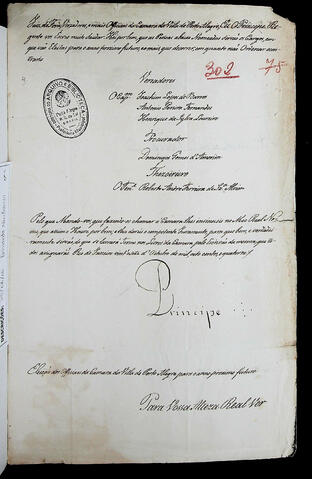 Juiz de Fora, Vereadores, e mais Officiaes da Camara da Villa de Porto Alegre, Eu O Principe Re
gente vos Envio muito Saudar. Hey por bem, que as Pessoas abaixo Nomeadas Sirvaõ os Cargos, em
que vaõ Eleitas para o anno proximo futuro, e os mais que decorrer, em quanto naõ Ordenar o con
trario
302
75
Vereadores
O Capᵐ. Joachim Lopes de Barros
Antonio Fernandes
Henrique da Sylva Loureiro
Procurador
Domingos Gomes d'Amorim
Thezoireiro
O Tenᵗ. Roberto Andre Ferreira de
Pelo que Mando-vos, que fazendo-os chamar á Camara lhes ensineis esta Minha Real
que assim o Houve por bem, e lhes dareis o competente Juramento, para que bem, e verdadei
ramente sirvaõ, do que se fará Termo nos Livros da Camara pela forma do mesmo, que to
dos assignaráõ. Rio de Janeiro vinte de Outubro de mil oito centos, e quatorze.
Principe
Eleiçaõ dos Officiaes da Camara da Villa de Porto Alegre para o anno proximo futuro
Para Vossa Alteza Real Ver